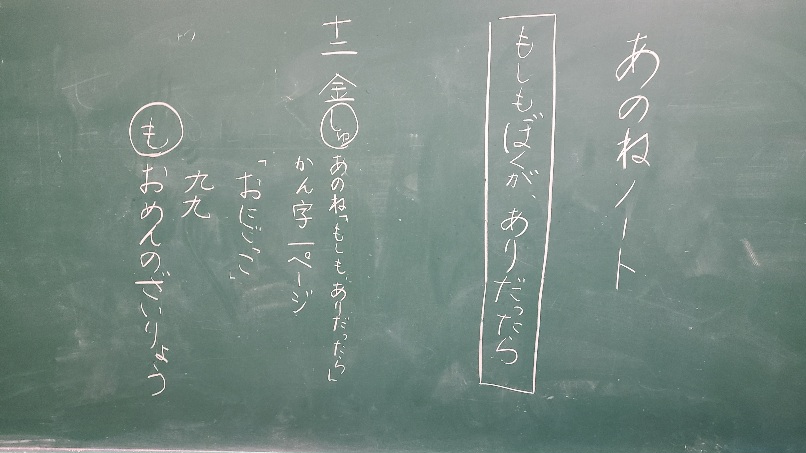 あのねノート
もしもぼくが、ありだったら
十二 金 しゅ あのね「もしも、ありだったら」
かん字一ページ
「おにごっこ」
九九
も おめんのざいりょう